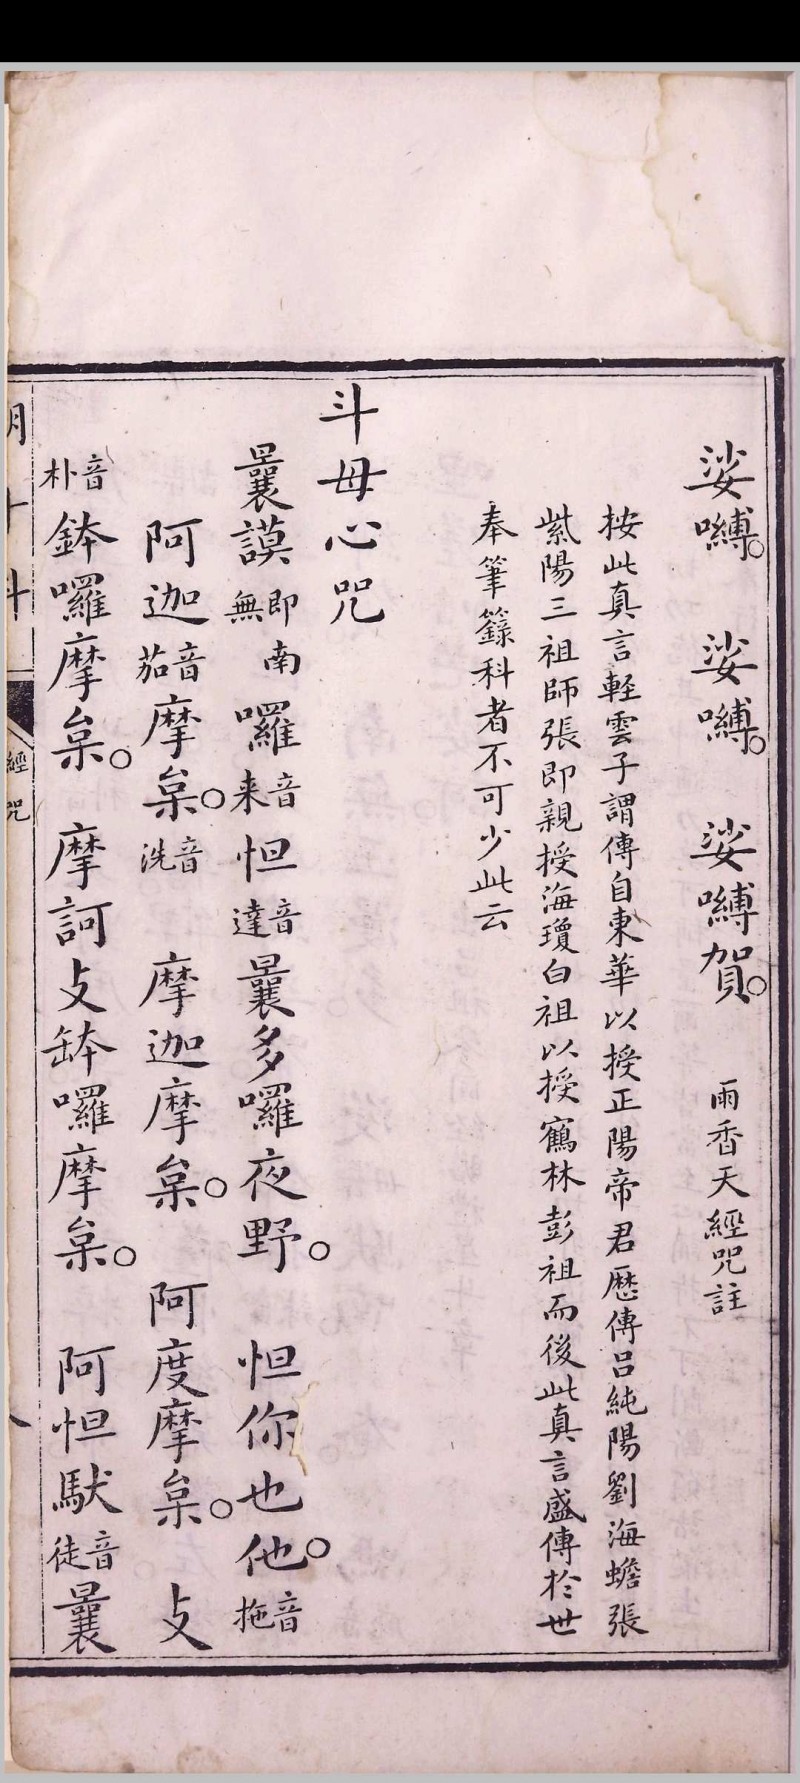 娑嚩。娑嚩。娑嚩賀。雨香天經咒註
按此真言輕雲子謂傳自東華以授正陽帝君歷傳呂純陽劉海蟾張
紫陽三祖師張即親授海瓊白祖以授鶴林彭祖而後此真言盛傳於世
奉筆籙科者不可少此云
斗母心咒
曩謨即南無囉音来怛音達曩多囉夜野。怛你也他。音拖
阿迦音茄摩㒱。音洗摩迦摩㒱。阿度摩㒱。攴
音朴鉢囉摩㒱。摩訶攴鉢囉摩㒱。阿怛馱音徒曩
經咒